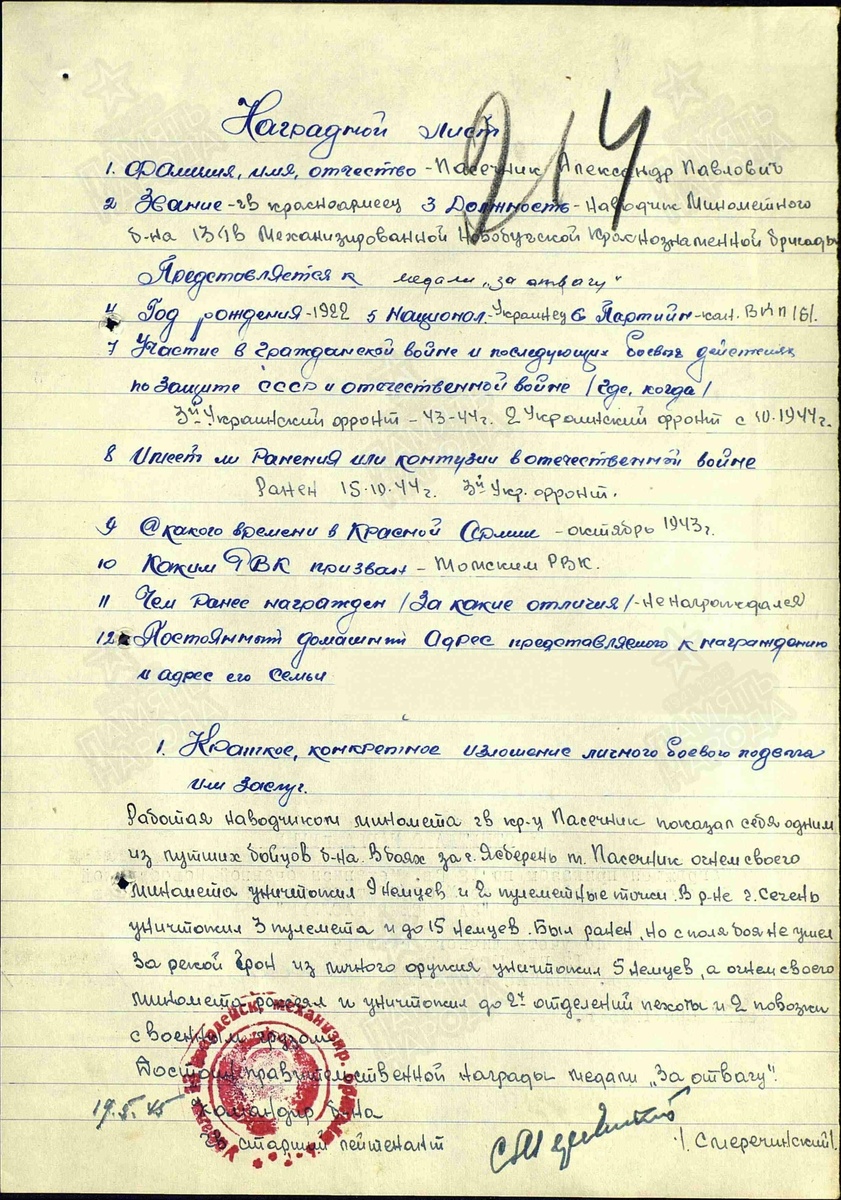 214
Наградной лист
1. Фамилия, имя, отчество - Пасечник Александр Павлович
2 Звание - гв красноармеец 3 Должность - Наводчик Минометного
б-на 13 гв Механизированной Новобугской Краснознаменной бригады
Представляется к медали „за отвагу"
4 Год рождения - 1922 5 Национал. - Украинец 6 Партийн - кан. ВКП/б/.
7 Участие в гражданской войне и последующих боевых действиях
по защите СССР и отечественной войне /где, когда/
3й Украинский фронт - 43-44г. 2 Украинский фронт с 10.1944г.
8 Имеет ли ранения или контузии в отечественной войне
Ранен 15.10.44г. 3й Укр. фронт.
9 С какого времени в Красной Армии - октябрь 1943г.
10 Каким РВК призван - Томским РВК.
11 Чем ранее награжден /За какие отличия/ - не награждался
12 Постоянный домашний Адрес представляемого к награждению
и адрес его семьи
1. Краткое, конкретное изложение личного боевого подвига
или заслуг.
Работая наводчиком миномета гв кр-ц Пасечник показал себя одним
из лучших бойцов б-на. В боях за г. Ясберень т. Пасечник огнем своего
миномета уничтожил 9 немцев и 2 пулеметные точки. В р-не г. Сечень
уничтожил 3 пулемета и до 15 немцев. Был ранен, но с поля боя не ушел
За рекой Грон из личного оружия уничтожил 5 немцев, а огнем своего
миномета рассеял и уничтожил до 2х отделений пехоты и 2 повозки
с военным грузом.
Достоин правительственной награды медали „За отвагу".
19.5.45 Командир б-на
Гв старший лейтенант /Смеречинский/.